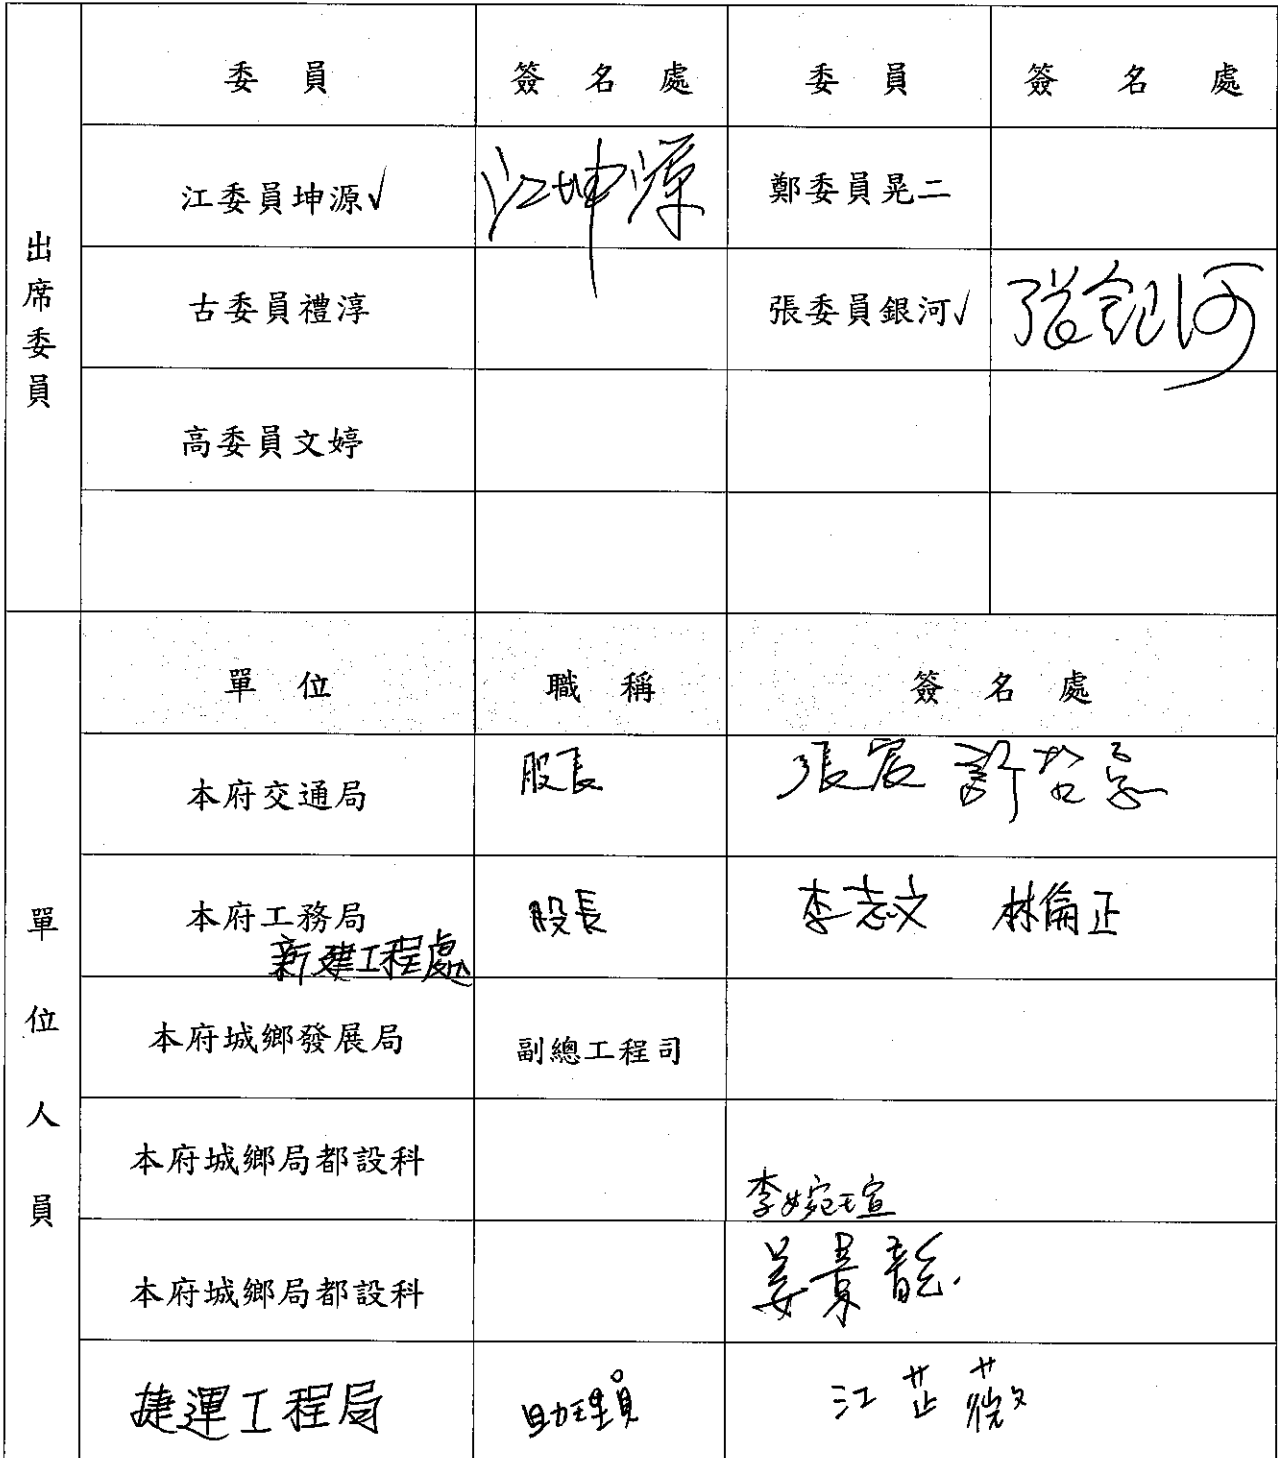 出席委員
委員 簽名處 委員 簽名處
江委員坤源✓ 江坤源 鄭委員晃二
古委員禮淳 張委員銀河✓ 張銀河
高委員文婷
單位人員
單位 職稱 簽名處
本府交通局 股長 張宸 許哲
本府工務局 股長 李志文 林倫正
新建工程處
本府城鄉發展局 副總工程司
本府城鄉局都設科 李婉瑄
本府城鄉局都設科 姜景
捷運工程局 助理員 江芷薇